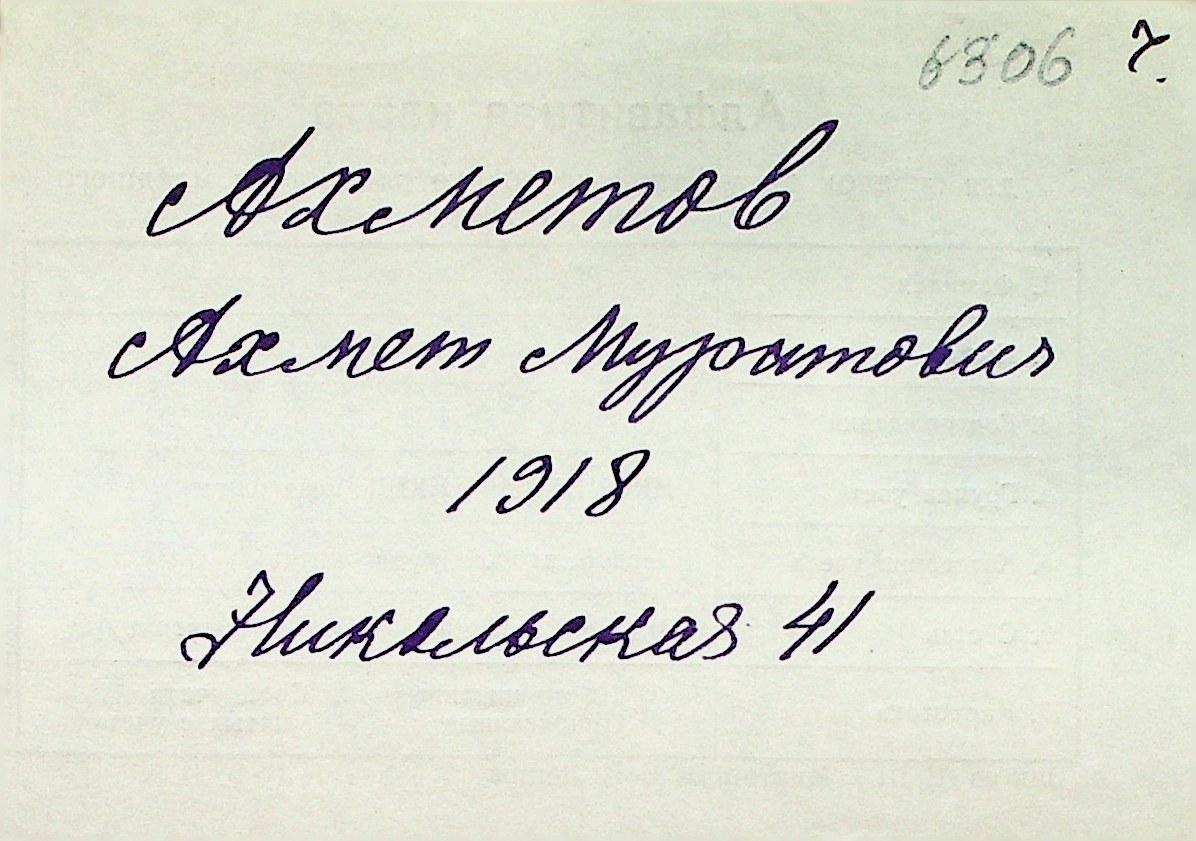 6806 7.
Ахметов
Ахмет Муратович
1918
Никольская 41